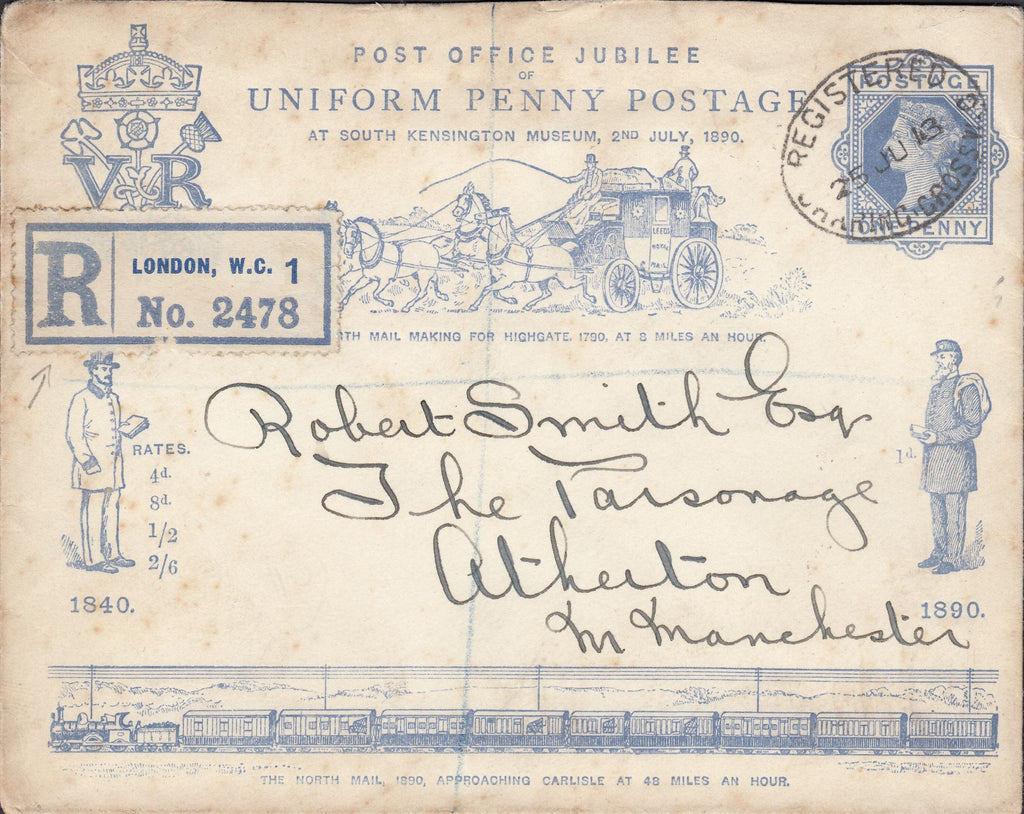 POST OFFICE JUBILEE
OF
UNIFORM PENNY POSTAGE
AT SOUTH KENSINGTON MUSEUM, 2ND JULY, 1890.
VR
REGISTERED
25 JU 13
CHARING CROSS
POSTAGE
PENNY
LEEDS
ROYAL
MAIL
R
LONDON, W.C. 1
No. 2478
TH MAIL MAKING FOR HIGHGATE, 1790, AT 8 MILES AN HOUR.
Robert Smith Esq
The Parsonage
Atherton
Nr Manchester
RATES.
4d.
8d.
1/2
2/6
1840.
1d.
1890.
THE NORTH MAIL, 1890, APPROACHING CARLISLE AT 48 MILES AN HOUR.